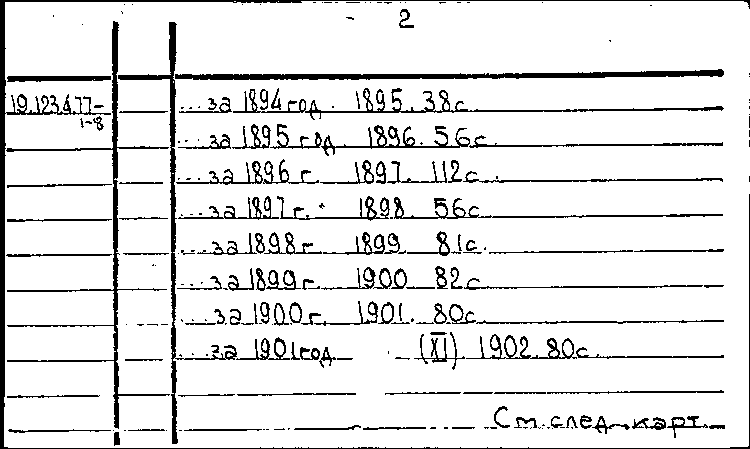 2
19.123.4.77-
1-8
...за 1894 год. 1895. 38с.
...за 1895 год. 1896. 56с.
...за 1896 г. 1897. 112с.
...за 1897 г. 1898. 56с.
...за 1898 г. 1899. 81с.
...за 1899 г. 1900 82с.
...за 1900 г. 1901. 80с.
...за 1901 год (XI). 1902. 80с.
См. след. карт.